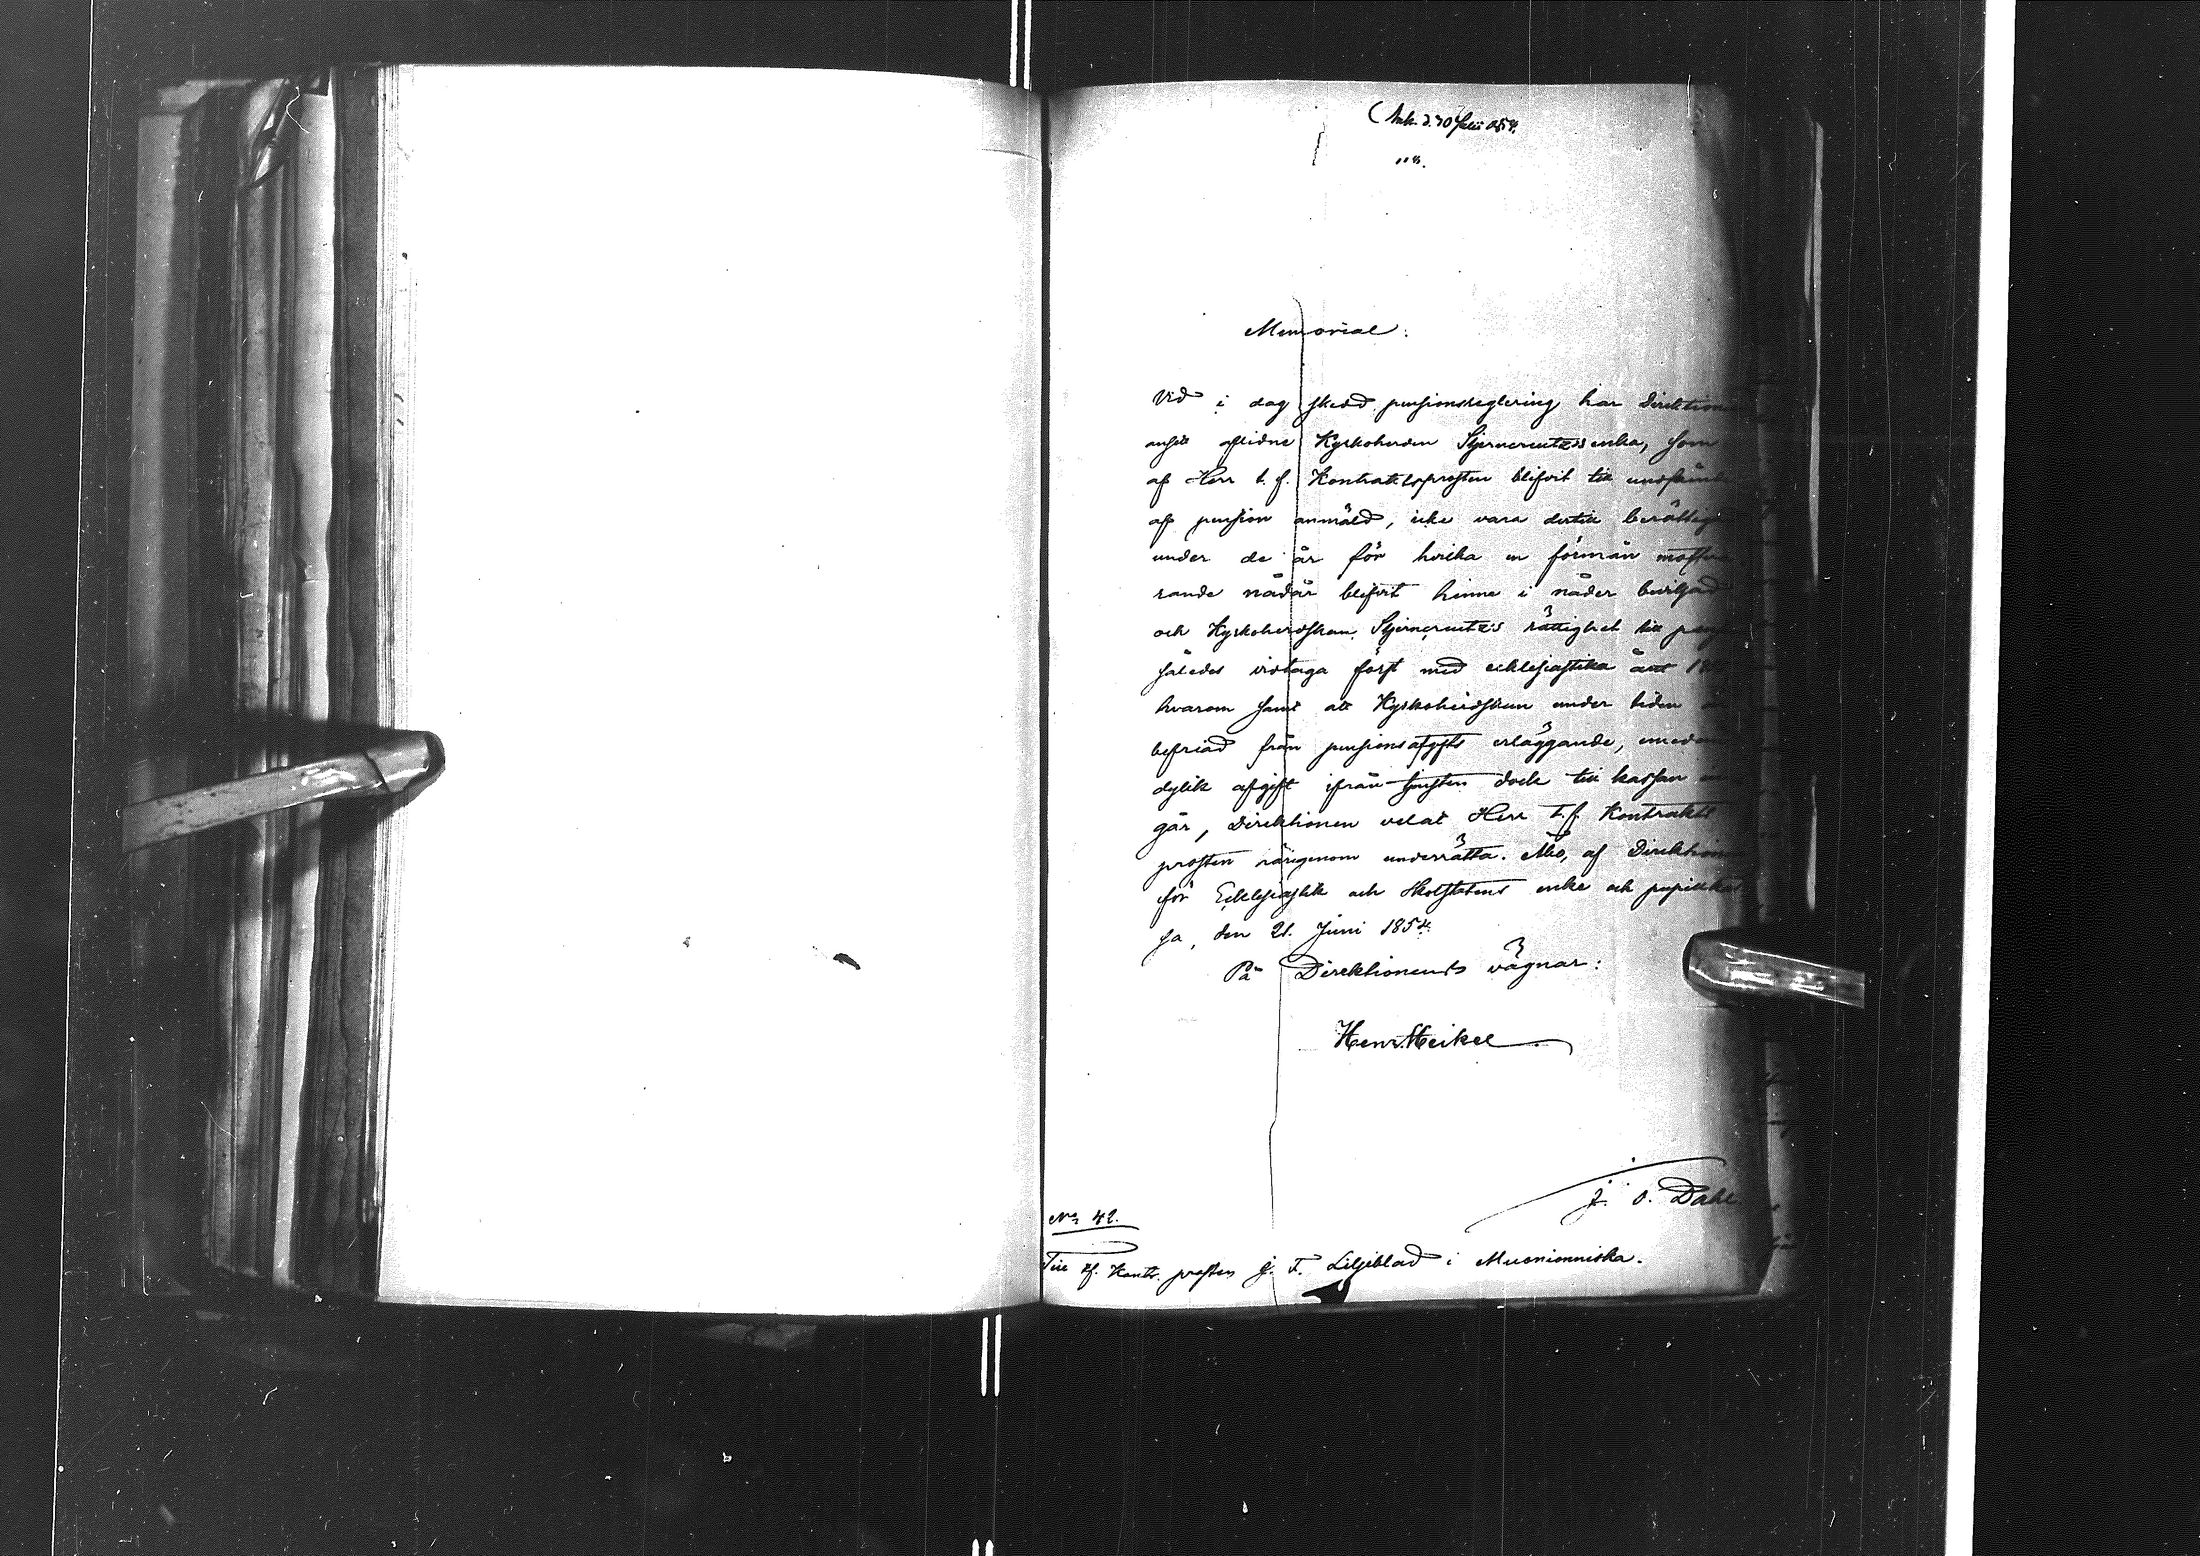 (Ank. d. 30 Julii 1854.
118.
Memorial:
Vid i dag skedd pensionsreglering har Direktion
ansett aflidne Kyrkoherden Stjerncreutz's enka, som
af Herr t. f. Kontraktsprosten blifvit till
af pension anmäld, icke vara dertill berättig
under de år för hvilka en förmån motsva
rande nådår blifvit henne i nåder beviljad
och Kyrkoherdskan Stjerncreutz's rättighet till pen
således vidtaga först med ecklesiastika året 18
hvarom samt att Kyrkoherdskan under tiden
befriad från pensionsafgifts erläggande, emedan
dylik afgift ifrån tjensten dock till kassan
går, Direktionen velat Herr t. f. Kontrakts
prosten härigenom underrätta. Åbo, af Direktion
för Ecklesiastik och Skolstatens enke och pupillkas
sa, den 21. Juni 1854.
På Direktionens vägnar:
Henr. Heikel
J. O. Dahl
No 42.
Till tf. Kontr. prosten J. F. Liljeblad i Muonionniska.